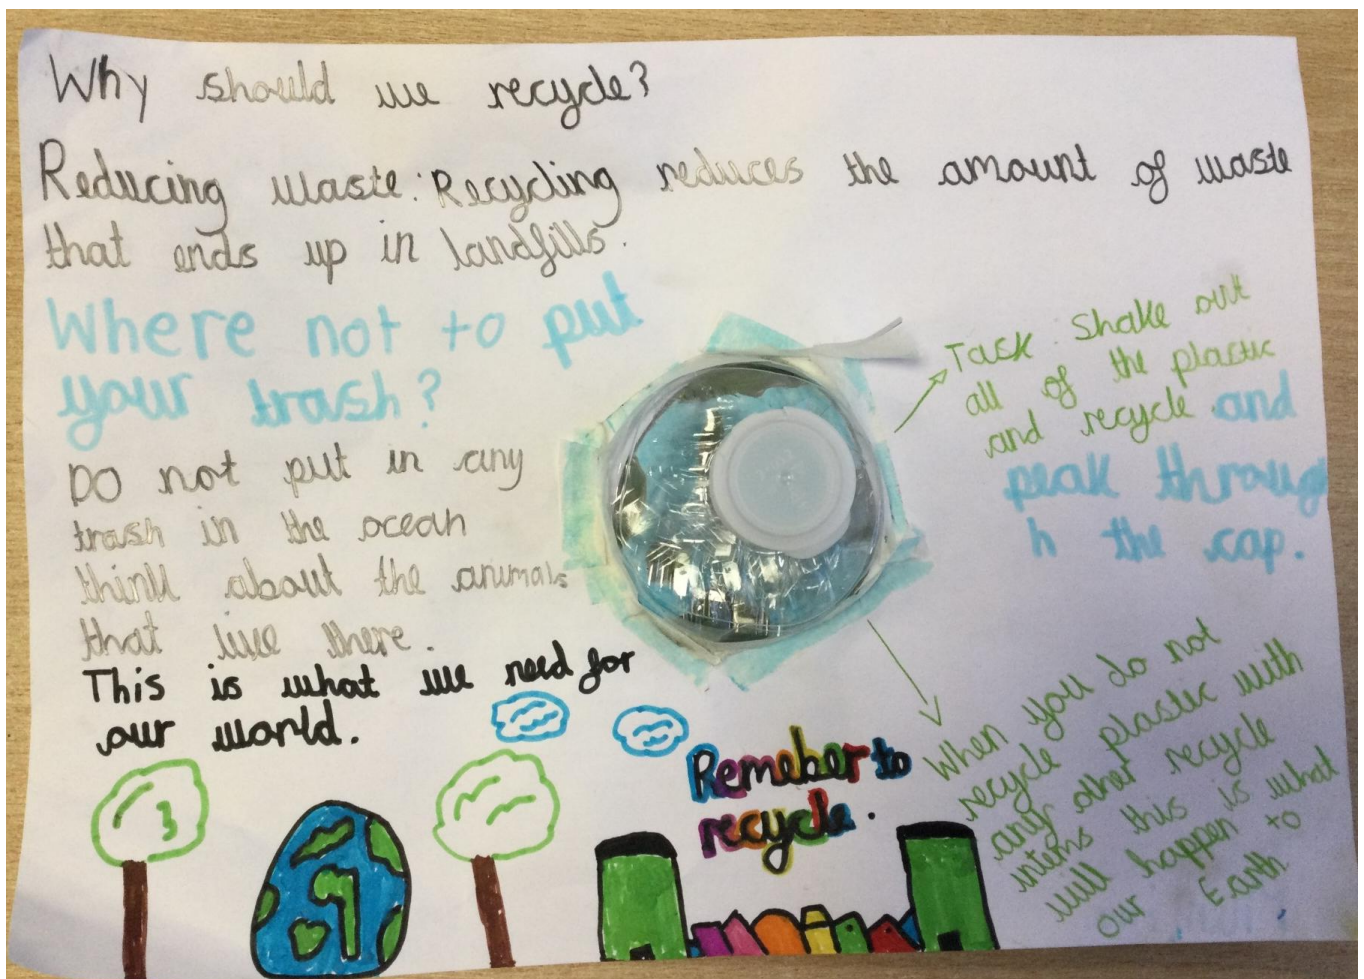 Why should we recycle?
Reducing waste: Recycling reduces the amount of waste
that ends up in landfills.
Where not to put
your trash?
DO not put in any
trash in the ocean
think about the animals
that live there.
This is what we need for
our world.
Task Shake out
all of the plastic
and recycle and
peak throug
h the cap.
When you do not
recycle plastic with
any other recycle
intems this is what
will happen to
our Earth
Remeber to
recycle.